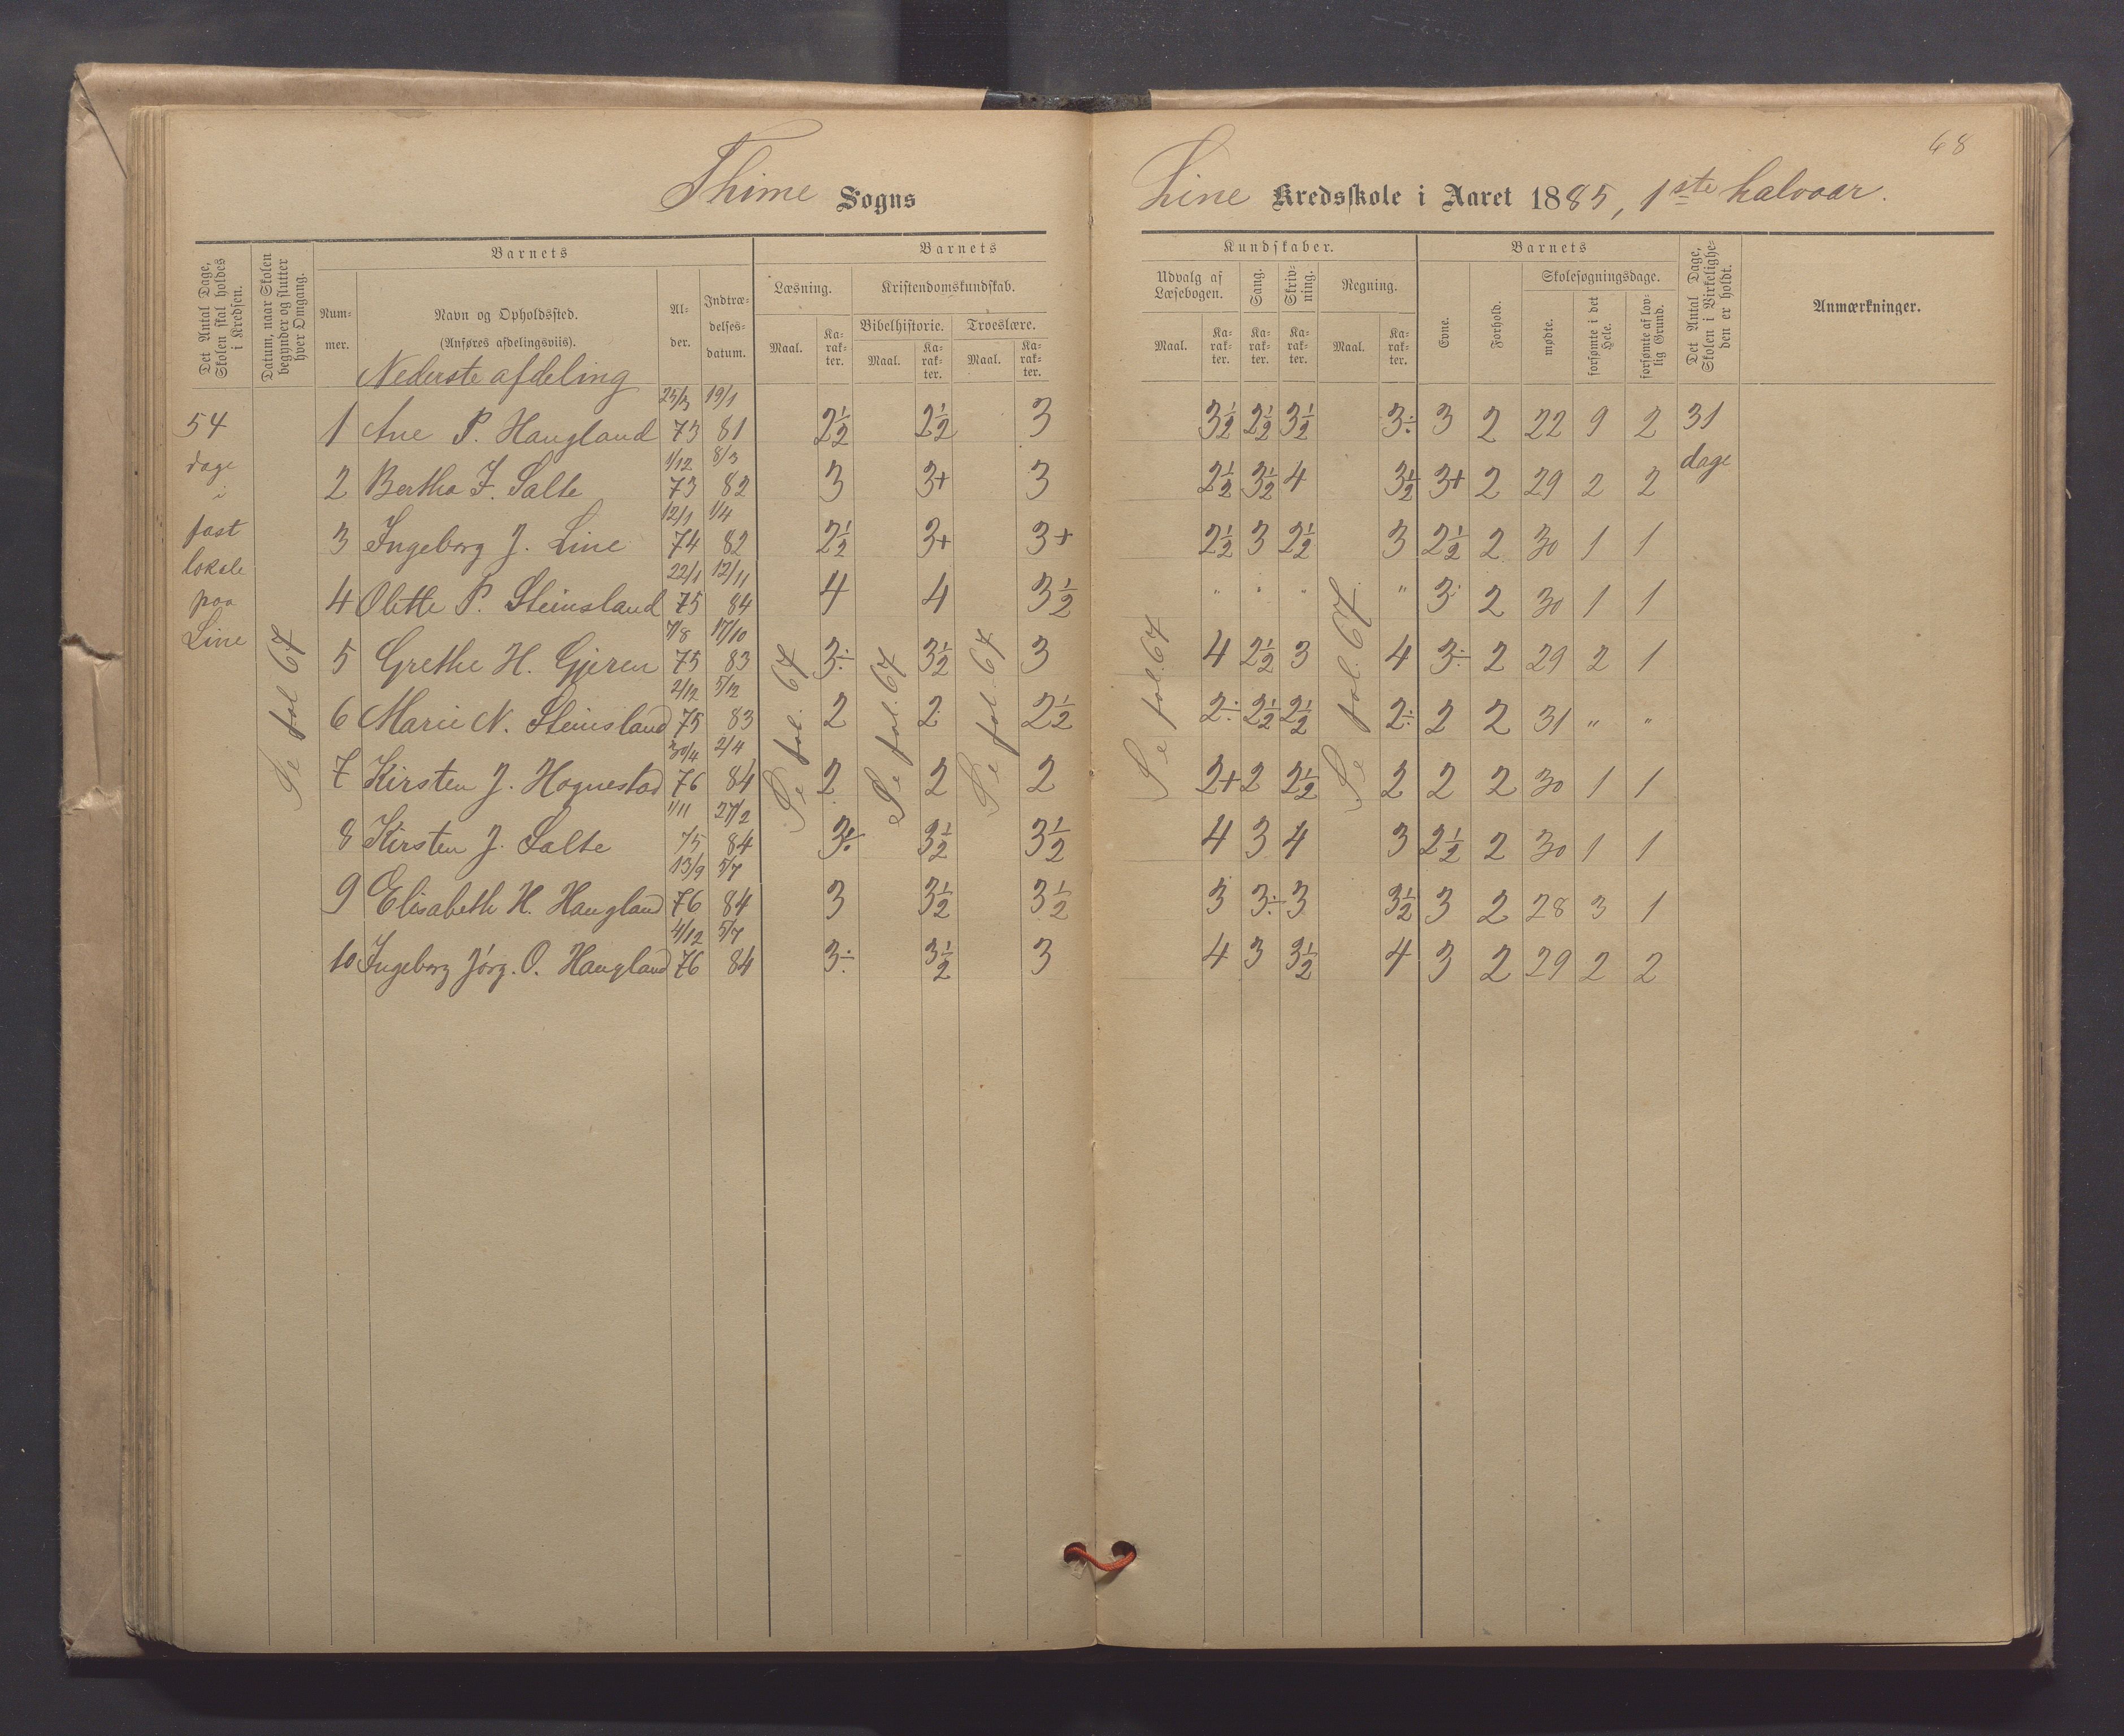 68
Thime Sogns Line Kredsskole i Aaret 1885, 1ste halvaar.
Det Antal Dage, Skolen skal holdes i Kredsen.
Datum, naar Skolen begynder og slutter hver Omgang.
Barnets
Nummer.
Navn og Opholdssted.
(Anføres afdelingsviis).
Alder.
Indtrædelsesdatum.
Barnets
Læsning.
Maal. Karakter.
Kristendomskundskab.
Bibelhistorie. Troeslære.
Maal. Karakter. Maal. Karakter.
Kundskaber.
Udvalg af Læsebogen.
Maal. Karakter.
Sang.
Karakter.
Skrivning.
Karakter.
Regning.
Maal. Karakter.
Barnets
Evne.
Forhold.
Skolesøgningsdage.
mødte.
forsømte i det Hele.
forsømte af lovlig Grund.
Det Antal Dage, Skolen i Virkeligheden er holdt.
Anmærkninger.
Nederste afdeling
54 dage i fast lokale paa Line
Se fol 67
Se fol. 67
Se fol. 67
Se fol. 67
Se fol. 67
Se fol. 67
31 dage
1 Ane P. Haugland 25/3 73 19/1 81 2½ 2½ 3 3½ 2½ 3½ 3÷ 3 2 22 9 2
2 Bertha F. Salte 1/12 73 8/3 82 3 3+ 3 2½ 3½ 4 3½ 3+ 2 29 2 2
3 Ingeborg J. Line 12/1 74 1/4 82 2½ 3+ 3+ 2½ 3 2½ 3 2½ 2 30 1 1
4 Olette P. Steinsland 22/1 75 12/11 84 4 4 3½ " " " " 3÷ 2 30 1 1
5 Grethe H. Gjeren 7/8 75 17/10 83 3÷ 3½ 3 4 2½ 3 4 3÷ 2 29 2 1
6 Marie N. Steinsland 2/12 75 5/12 83 2 2 2½ 2÷ 2½ 2½ 2÷ 2 2 31 " "
7 Kirsten J. Hognestad 30/4 76 2/4 84 2 2 2 2+ 2 2½ 2 2 2 30 1 1
8 Kirsten J. Salte 1/11 75 27/2 84 3÷ 3½ 3½ 4 3 4 3 2½ 2 30 1 1
9 Elisabeth H. Haugland 13/9 76 5/7 84 3 3½ 3½ 3 3÷ 3 3½ 3 2 28 3 1
10 Ingeborg Jørg. O. Haugland 4/12 76 5/7 84 3÷ 3½ 3 4 3 3½ 4 3 2 29 2 2